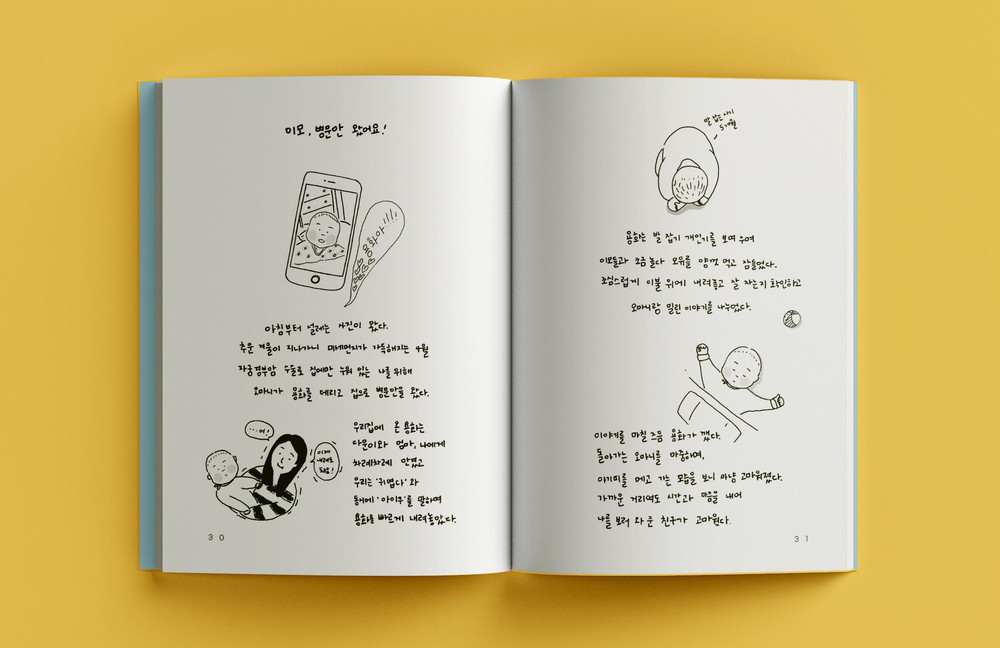 이모, 병문안 왔어요!
용화야!!!
아침부터 설레는 사진이 왔다.
추운 겨울이 지나가니 미세먼지가 가득해지는 4월
자궁경부암 수술로 집에만 누워 있는 나를 위해
오마니가 용화를 데리고 집으로 병문안을 왔다.
....어!
이제
내려도
되욤!
우리집에 온 용화는
다운이와 엄마, 나에게
차례차례 안겼고
우리는 '귀엽다'와
동시에 '아이쿠'를 말하며
용화를 빠르게 내려놓았다.
30
발 잡는 아기
5개월
용화는 발 잡기 개인기를 보여주며
이모들과 조금 놀다 모유를 양껏 먹고 잠들었다.
조심스럽게 이불 위에 내려놓고 잘 자는지 확인하고
오마니랑 밀린 이야기를 나누었다.
이야기를 마칠 즈음 용화가 깼다.
돌아가는 오마니를 마중하며,
아기띠를 메고 가는 모습을 보니 마냥 고마워졌다.
가까운 거리여도 시간과 마음을 내어
나를 보러 와 준 친구가 고마웠다.
31